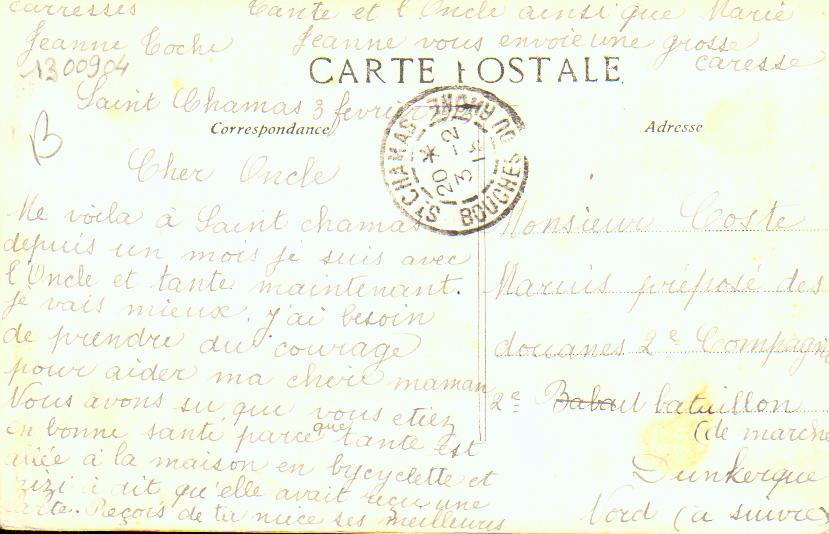 caresses Tante et l'Oncle ainsi que Marie
Jeanne Coche Jeanne vous envoie une grosse
caresse
1300904
CARTE POSTALE
Saint Chamas 3 fevrier
B
Correspondance
Adresse
ST CHAMAS BOUCHES DU RHONE
20 * 3 -2
Cher Oncle
Me voila à Saint chamas
depuis un mois je suis avec
l'Oncle et tante maintenant.
je vais mieux. J'ai besoin
de prendre du courage
pour aider ma cher maman
Nous avons su que vous etiez
en bonne santé parce que tante est
allée à la maison en bycyclette et
zizi a dit qu'elle avait reçu une
carte. Reçois de ta niece ses meilleures
Monsieur Coste
Marius préposé des
douanes 2e Compagnie
2e bataillon
(de marche
Dunkerque
Nord (a suivre)